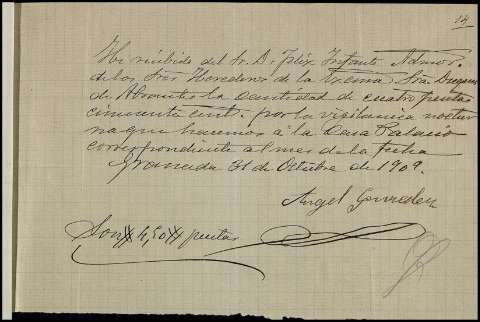 14
He recibido del Sr. D. Felix Infante Admor.
de los Sres Herederos de la Excma. Sra. Duquesa
de Abrantes la cantidad de cuatro pesetas
cincuenta cent. por la vigilancia noctur
na que hacemos á la Casa Palacio
correspondiente al mes de la fecha
Granada 31 de Octubre de 1909.
Angel Gonzalez
Son 4,50 pesetas